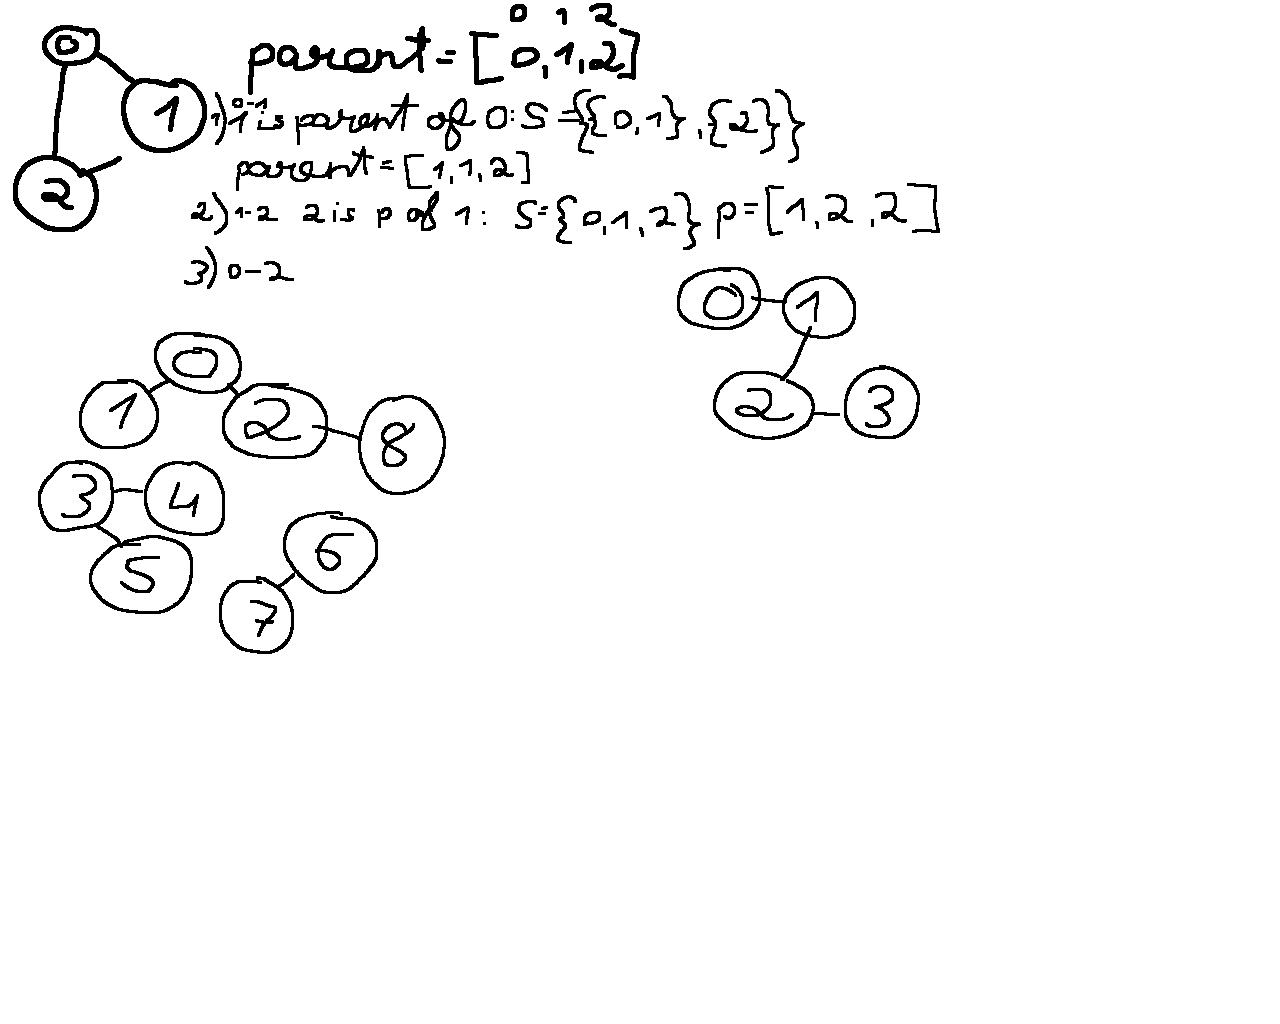 0 1 2
0 parent = [0,1,2]
1
0-1
1) 1 is parent of 0: S = {{0,1},{2}}
parent = [1,1,2]
2
2) 1-2 2 is p of 1: S = {0,1,2} p = [1,2,2]
3) 0-2
0 1
0
1 2 8
2 3
3 4
6
5
7